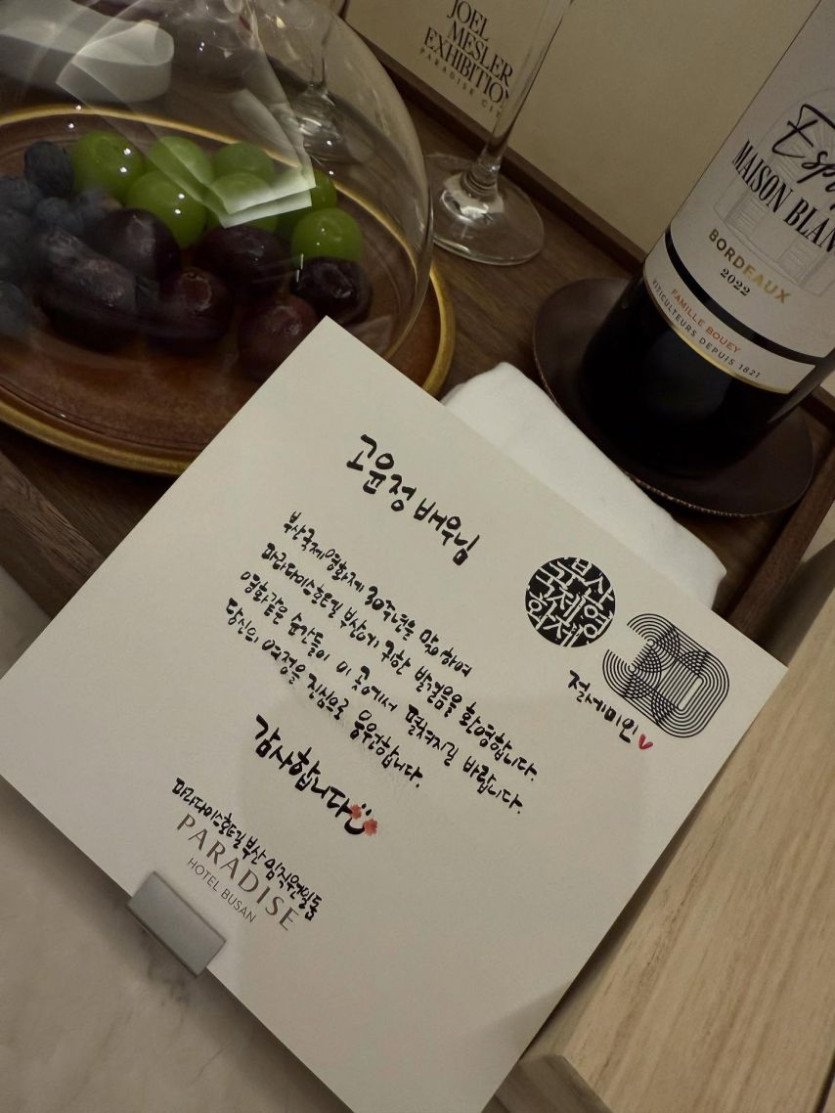 JOEL
MESLER
EXHIBITION
PARADISE CITY
MAISON BLAN
BORDEAUX
2022
FAMILLE BOUEY
VITICULTEURS DEPUIS 1821
고윤정 배우님
부산국제영화제 30주년을 맞이하여
파라다이스호텔 부산에 귀한 발걸음을 환영합니다.
영화같은 순간들이 이 곳에서 펼쳐지길 바랍니다.
당신의 여정을 진심으로 응원합니다.
감사합니다
부산
국제영
화제
30
절세미인
파라다이스호텔 부산 임직원일동
PARADISE
HOTEL BUSAN